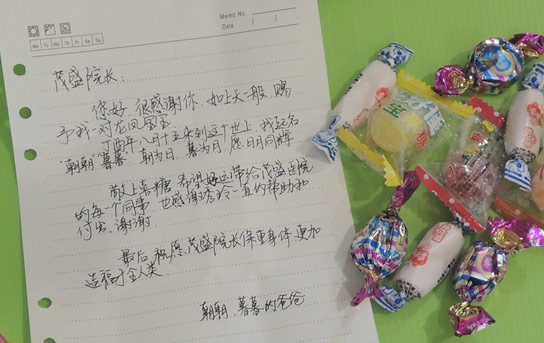 Memo No.
Mo Tu We Th Fr Sa Su
Date / /
茂盛院长:
你好,很感谢你,如上天一般赐
予我一对龙凤宝宝
丁酉年八月十五来到这个世上,我起名
"朝朝""暮暮" 朝为日,暮为月,愿日月同辉
献上喜糖 希望好运带给茂盛医院
的每一个同事,也感谢秀玲一直的帮助和
付出,谢谢
最后,祝愿茂盛院长保重身体,更加
造福于全人类
朝朝 暮暮的爸爸
宝